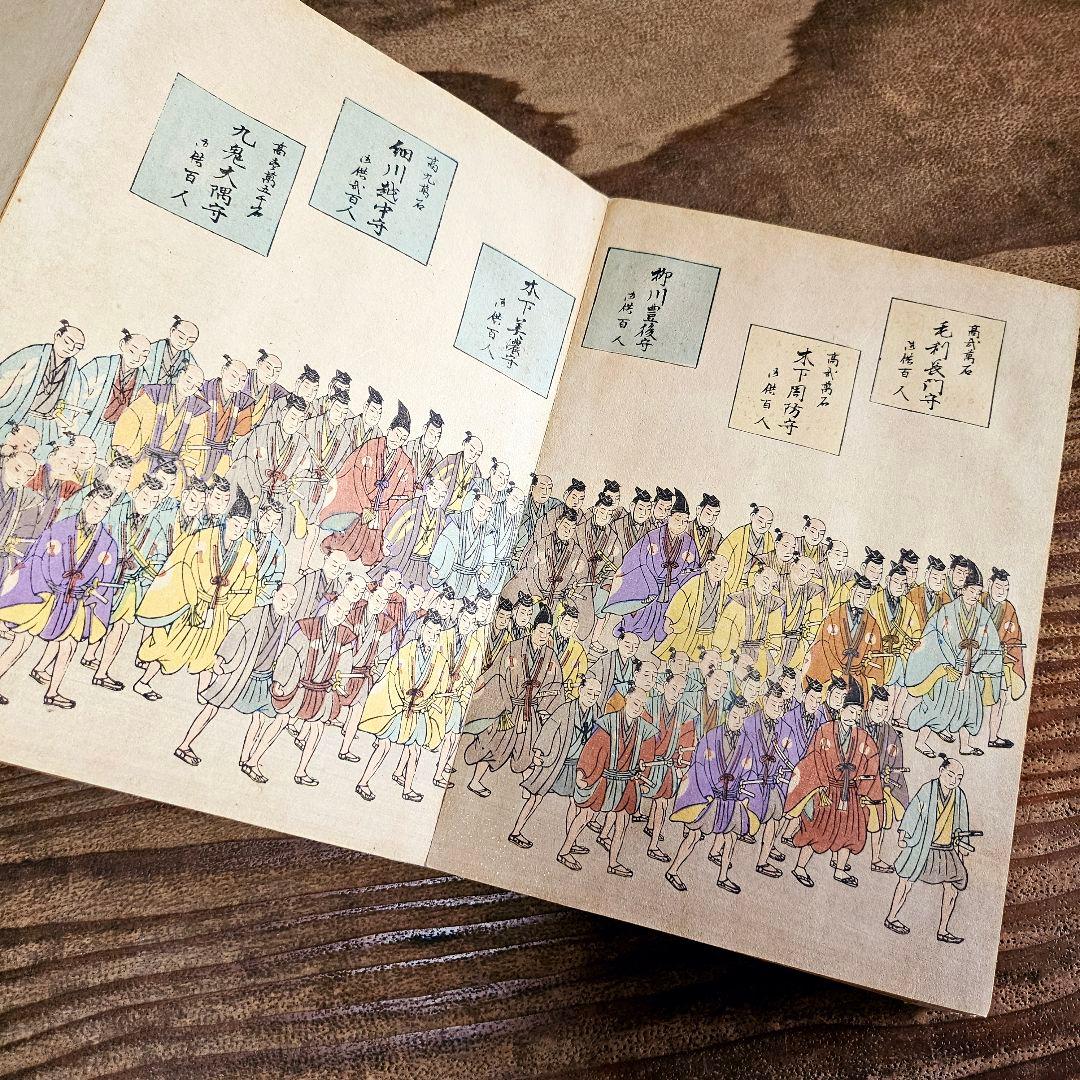 高弐萬石
毛利長門守
御供百人
高弐萬石
木下周防守
御供百人
柳川豊後守
御供百人
木下美濃守
御供百人
高九萬石
細川越中守
御供弐百人
高壱萬五千石
九鬼大隅守
御供百人